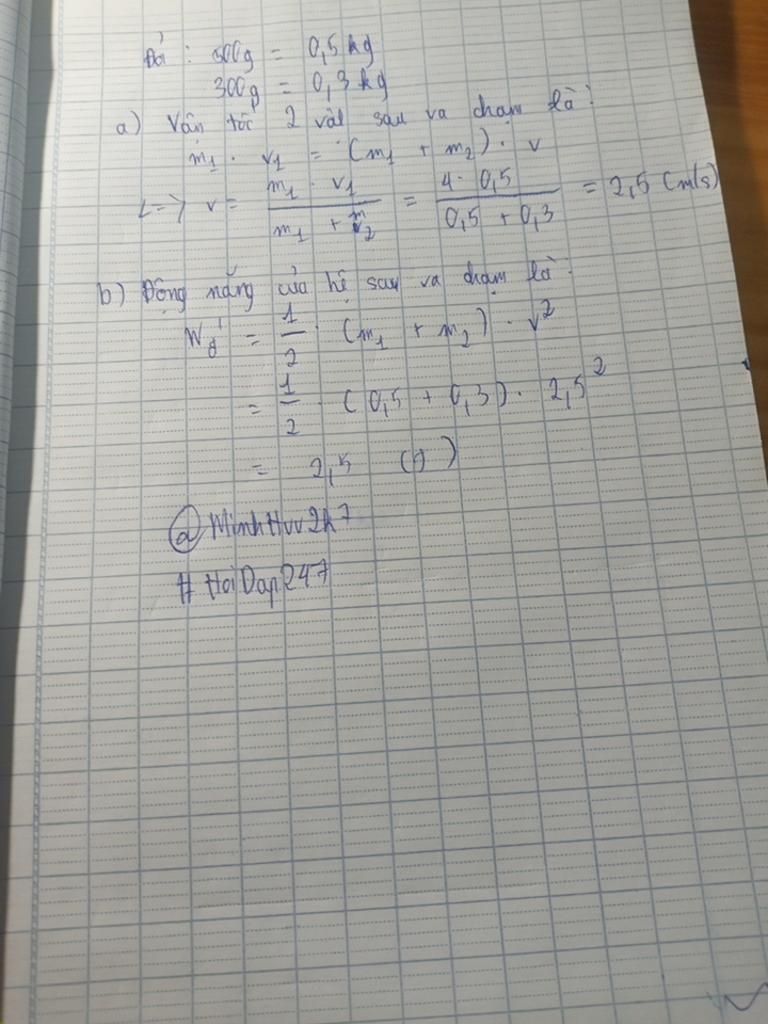 Đổi : 500g = 0,5 kg
300g = 0,3 kg
a) Vận tốc 2 vật sau va chạm là :
m₁ . v₁ = (m₁ + m₂) . v
<=> v = \frac{m₁ . v₁}{m₁ + m₂} = \frac{4 . 0,5}{0,5 + 0,3} = 2,5 (m/s)
b) Động năng của hệ sau va chạm là :
Wđ' = \frac{1}{2} . (m₁ + m₂) . v²
= \frac{1}{2} . (0,5 + 0,3) . 2,5²
= 2,5 (J)
@MinhHuv2k7
#HoiDap247